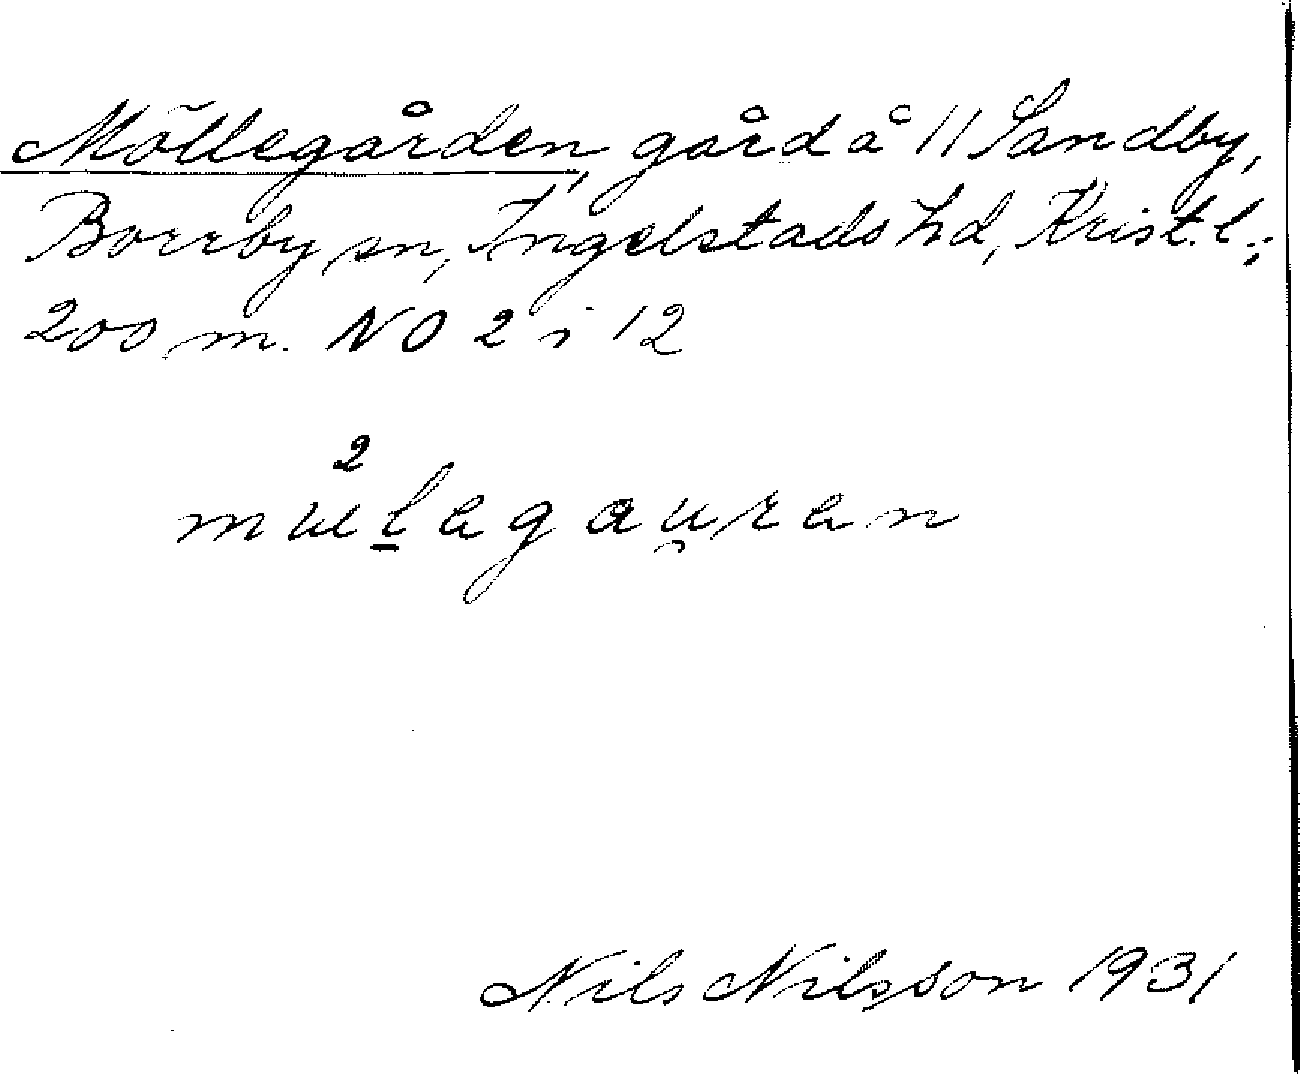 Möllegården, gård å 11 Sandby,
Borrby sn, Ingelstads hd, Krist. l.;
200 m. NO 2 i 12
2
mɯlagau̯ran
Nils Nilsson 1931